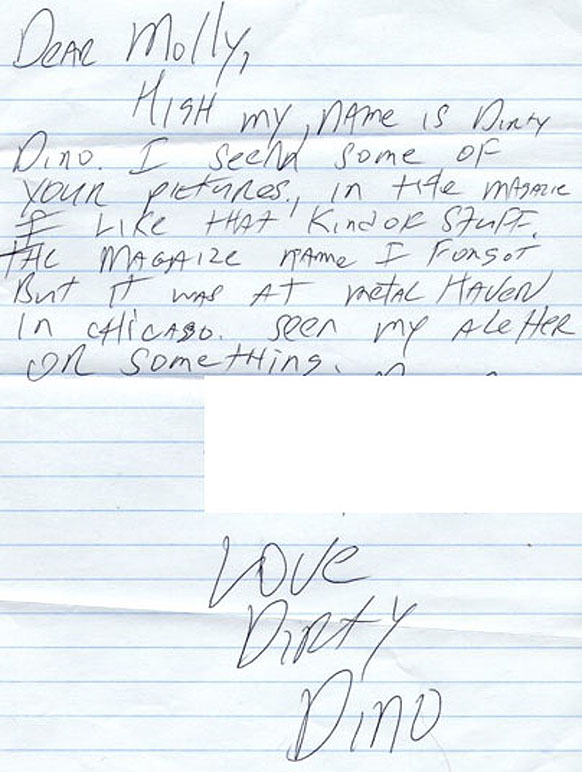 Dear Molly,
High my name is Dirty
Dino. I seend some of
your pictures, in the magazie
I like that kind of stuff.
the magaize name I forgot
But it was at metal Haven
in chicago. seen my a letter
or something.
Love
Dirty
Dino